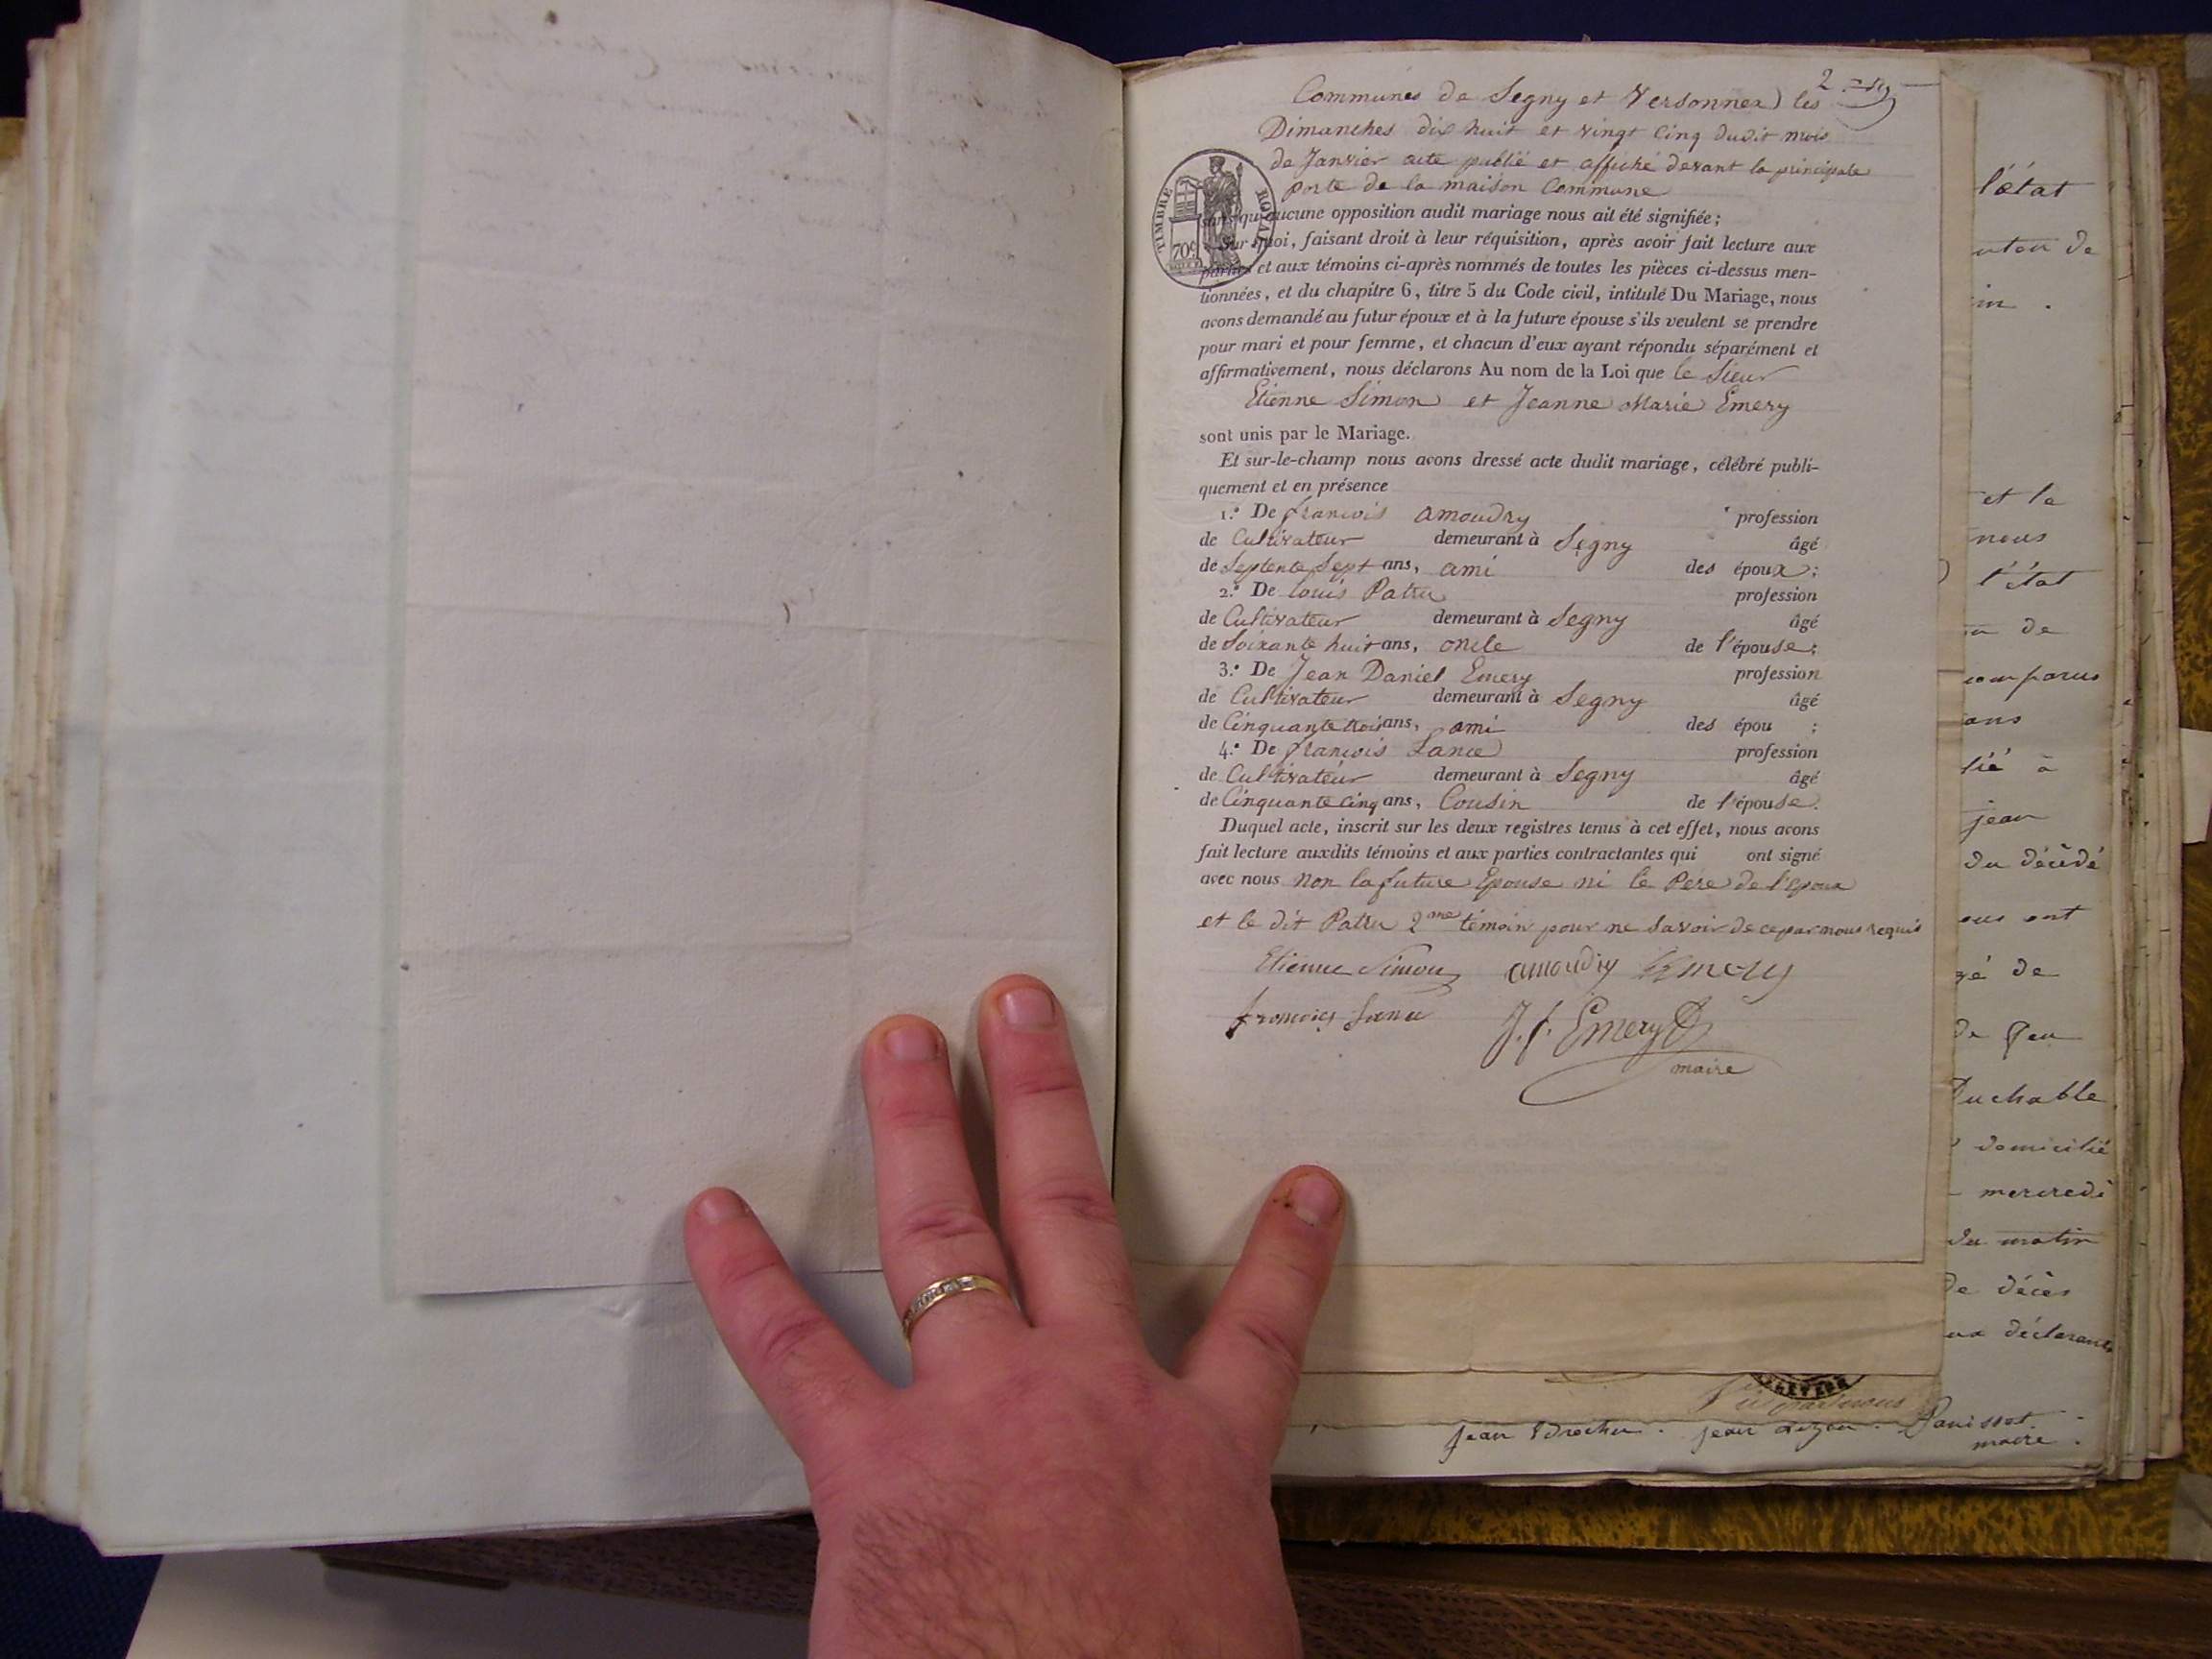 2
Communes de Segny et Versonnex) les
Dimanches dix huit et vingt cinq dudit mois
de Janvier acte publié et affiché devant la principale
porte de la maison Commune
TIMBRE ROYAL
70c
sans qu'aucune opposition audit mariage nous ait été signifiée;
Sur quoi, faisant droit à leur réquisition, après avoir fait lecture aux
parties et aux témoins ci-après nommés de toutes les pièces ci-dessus men-
tionnées, et du chapitre 6, titre 5 du Code civil, intitulé Du Mariage, nous
avons demandé au futur époux et à la future épouse s'ils veulent se prendre
pour mari et pour femme, et chacun d'eux ayant répondu séparément et
affirmativement, nous déclarons Au nom de la Loi que le Sieur
Etienne Simon et Jeanne Marie Emery
sont unis par le Mariage.
Et sur-le-champ nous avons dressé acte dudit mariage, célébré publi-
quement et en présence
1.° De francois amoudry profession
de Cultivateur demeurant à Segny âgé
de Septente Sept ans, ami des époux;
2.° De louis Patru profession
de Cultivateur demeurant à Segny âgé
de Soixante huit ans, oncle de l'épouse;
3.° De Jean Daniel Emery profession
de Cultivateur demeurant à Segny âgé
de Cinquante trois ans, ami des épou ;
4.° De francois Lance profession
de Cultivateur demeurant à Segny âgé
de Cinquante cinq ans, Cousin de l'épouse.
Duquel acte, inscrit sur les deux registres tenus à cet effet, nous avons
fait lecture auxdits témoins et aux parties contractantes qui ont signé
avec nous non la future Epouse ni le Pere de l'epoux
et le dit Patru 2me témoin pour ne savoir de ce par nous requis
Etienne Simon amoudry Emery
francois Lance J. f. Emery
maire
l'état
de
et la
nous
l'état
de
comparus
ans
à
jean
du décédé
ont
de
de feu
Duchable
domicilié
mercredi
du matin
de décès
déclarants
jean jean Panissot
maire